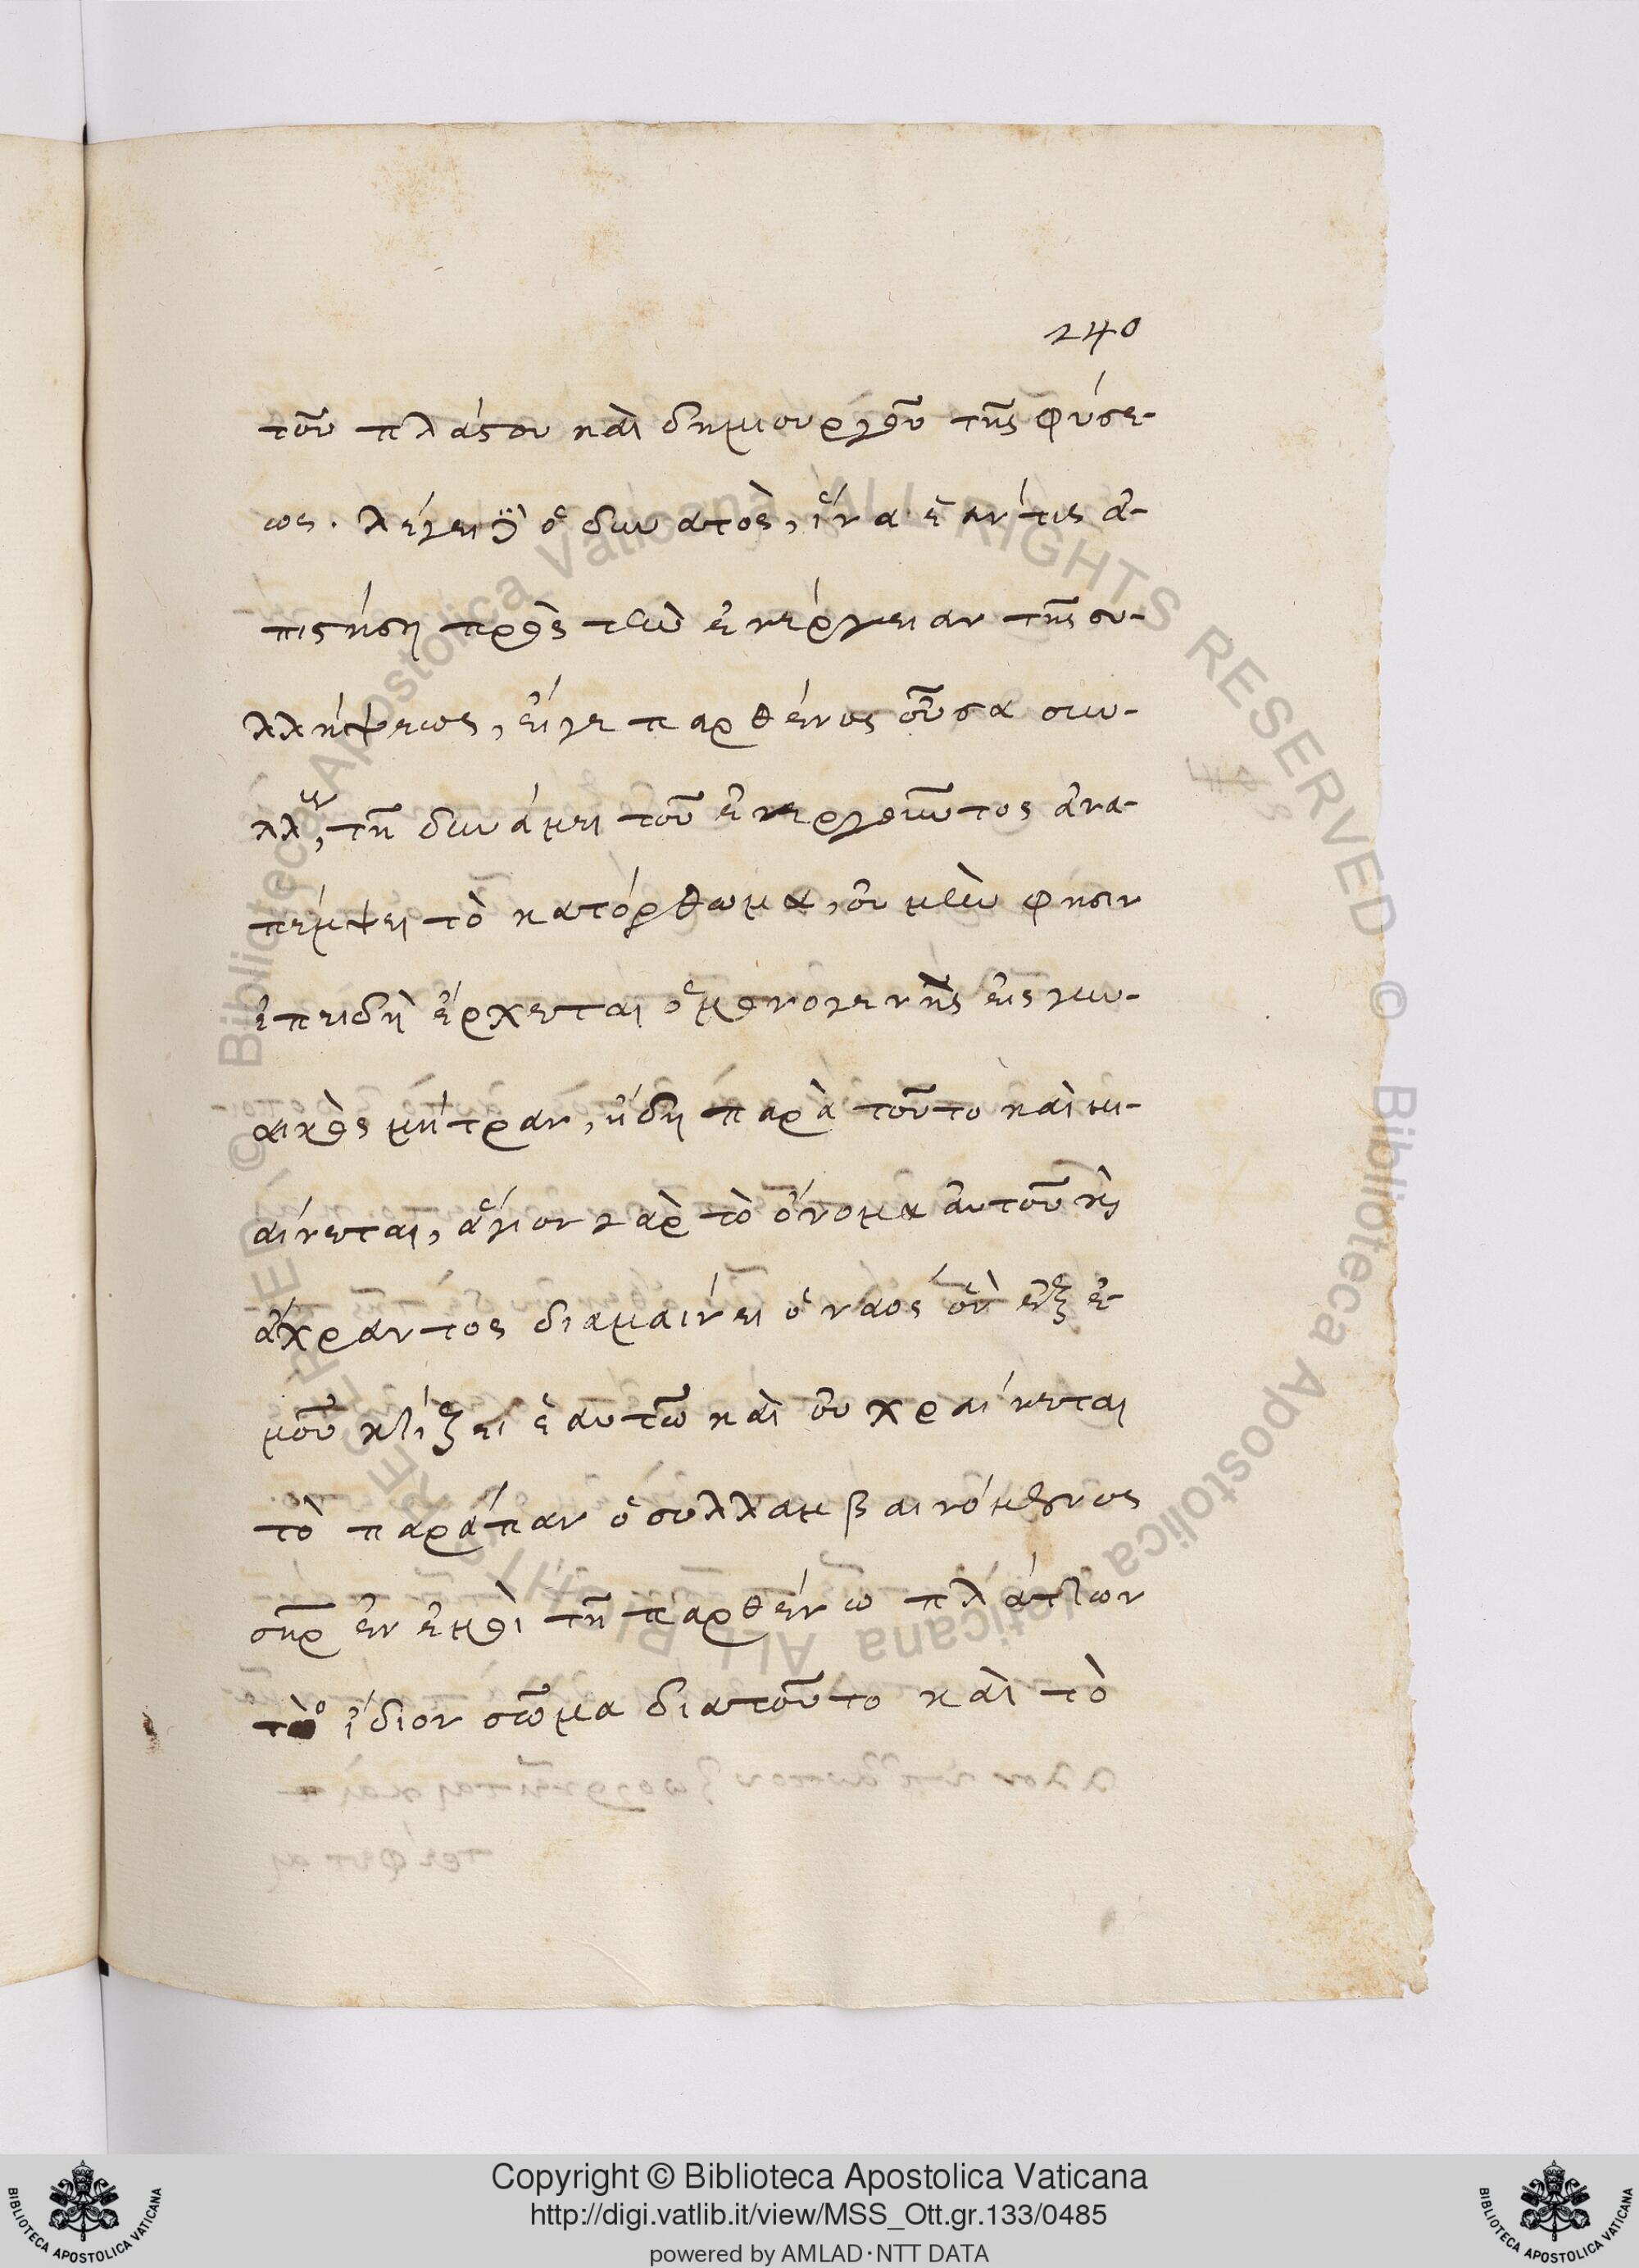 240
τοῦ πλάστου καὶ δημιουργοῦ τῆς φύσε-
ως. λέγει δὲ ὁ δυνατὸς, ἵνα ἐάν τις ἀ-
πιστήση πρὸς τὴν ἐνέργειαν τῆς συ-
λλήψεως, εἴγε παρθένος οὖσα συν-
τῆ δυνάμει τοῦ ἐνεργοῦντος ἀνα-
πέμψει τὸ κατόρθωμα, οὐ μὴν φησιν
ἐπειδὴ ἔρχεται ὁ μονογενὴς εἰς γυν-
αικὸς μήτραν, ἤδη παρὰ τοῦτο καὶ μι-
αίνεται, ἅγιον γὰρ τὸ ὄνομα αὐτοῦ καὶ
ἄχραντος διαμαίνει ὁ ναος ὃν ἐξ ἐ-
μοῦ κτίζει ἑαυτῶ καὶ οὐ χραίνεται
τὸ παράπαν ὁ συλλαμβαινόμενος
σῆρ ἐν ἐμοὶ τῆ παρθένω πλάττων
τὸ ἴδιον σῶμα διατοῦτο καὶ τὸ
Copyright © Biblioteca Apostolica Vaticana
http://digi.vatlib.it/view/MSS_Ott.gr.133/0485
powered by AMLAD·NTT DATA
BIBLIOTECA APOSTOLICA VATICANA
BIBLIOTECA APOSTOLICA VATICANA